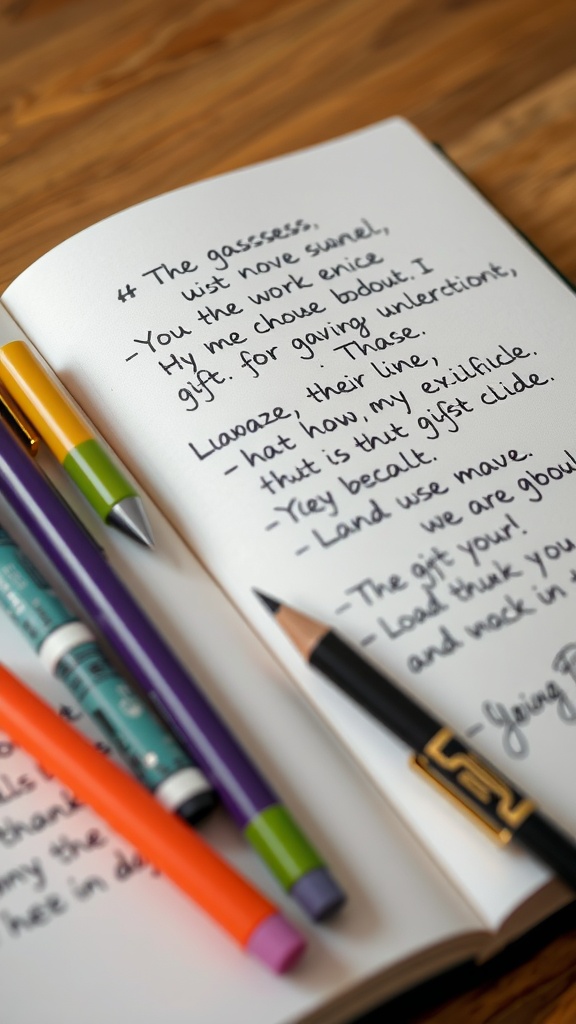 # The gasssess,
wist nove swnel,
- You the work enice
Hy me choue bodout. I
gift. for gaving unlerctiont,
. Thase.
Liabaze, their line,
- hat how, my exilficle.
thut is thut gifst clide.
- Yley becalt.
- Land wse mave.
we are gboul
- The gift your!
- Load thunk you
and mack in
- Joing
thank
my the
hee in day